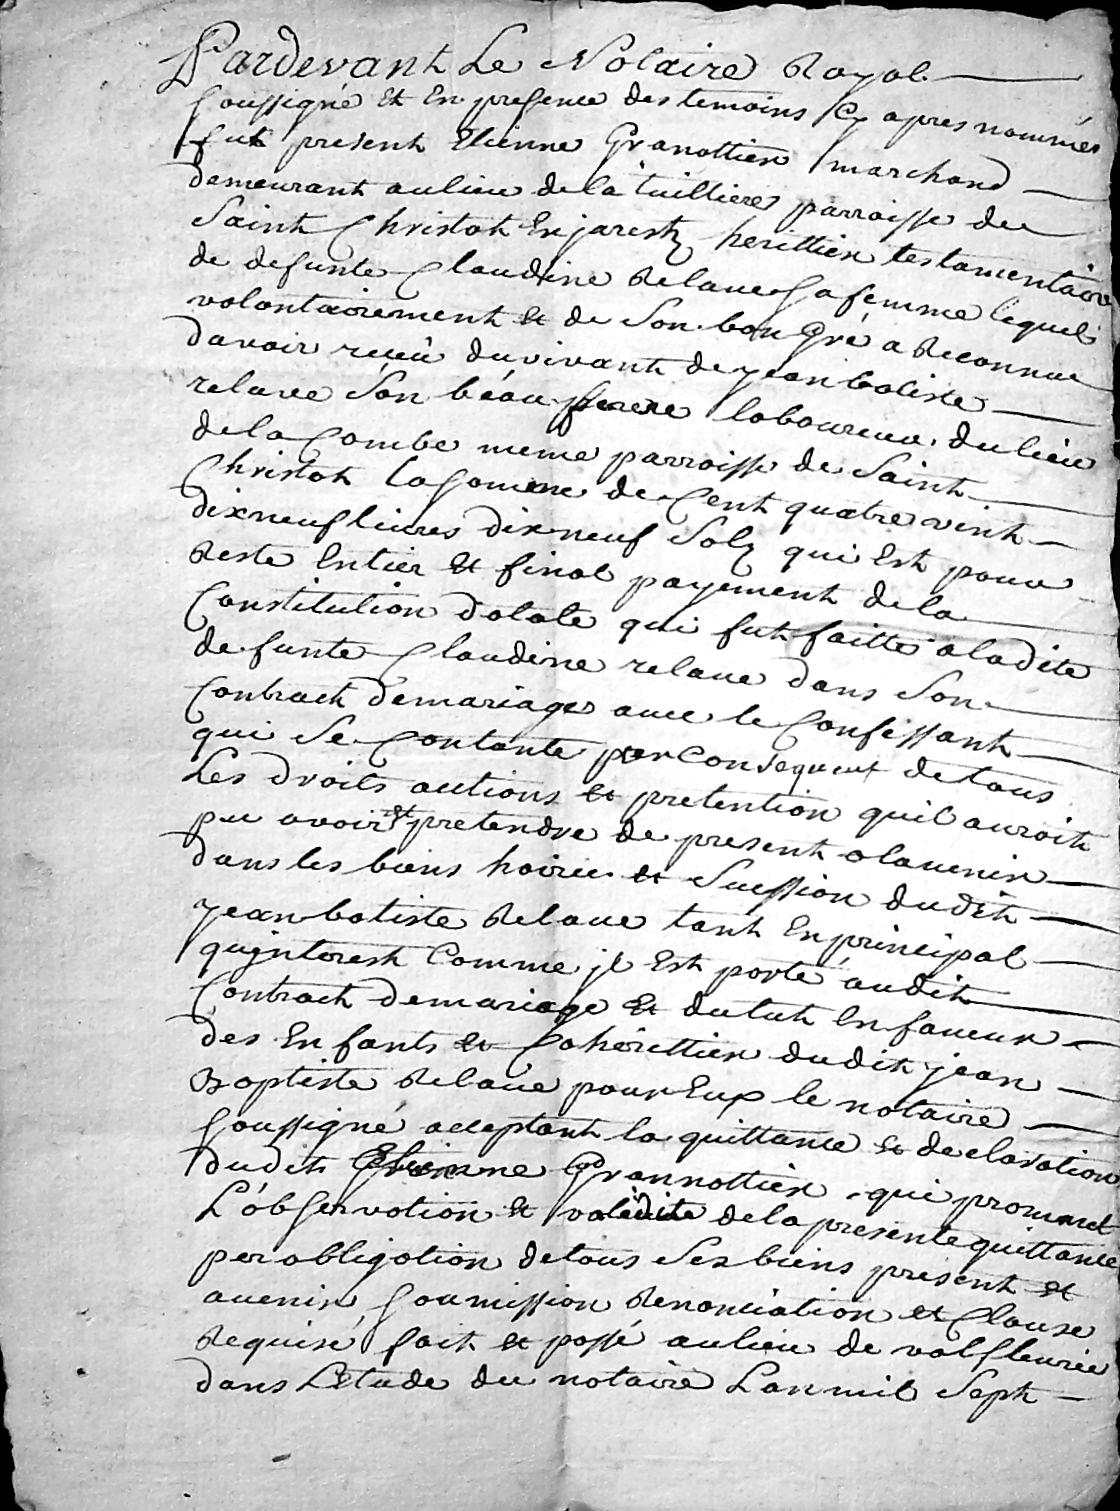 Pardevant Le Notaire Royal
soussigné et En presence des temoins cy apres nommés
fut present Etienne Granottier marchand
demeurant au lieu de la tuillieres parroisse de
Saint Christot En jarestz herittier testamentaire
de defunte Claudine Relave sa femme lequel
volontairement et de son bon Gré a Reconnue
davoir receu du vivant de jean batiste
relave son beau frere laboureur du lieu
de la Combe meme parroisse de Saint
Christot la somme de Cent quatre vint
dixneuf livres dixneuf Solz qui Est pour
Reste Entier et final payement de la
Constitution dotale qui fut faitte a ladite
defunte Claudine relave dans Son
Contract de mariage avec le Confessant
qui se Contante par consequent de tous
Les droits actions et pretention quil auroit
pu avoir et pretendre de present a lavenir
dans les biens hoirie et Sucession dudit
jean batiste Relave tant En principal
quinterest Comme jl Est porté audit
Contract de mariage Et dutut En faveur
des Enfants et Coherittier dudit jean
Baptiste Relave pour Eux le notaire
soussigné acceptant la quittance et declaration
dudit Etienne Grannottier qui promet
L'observation et validite de la presente quittance
per obligation de tous Ses biens present et
avenir soumission Renonciation et Clause
Requise fait et passé au lieu de valfleurie
dans L'Etude du notaire Lan mil Sept